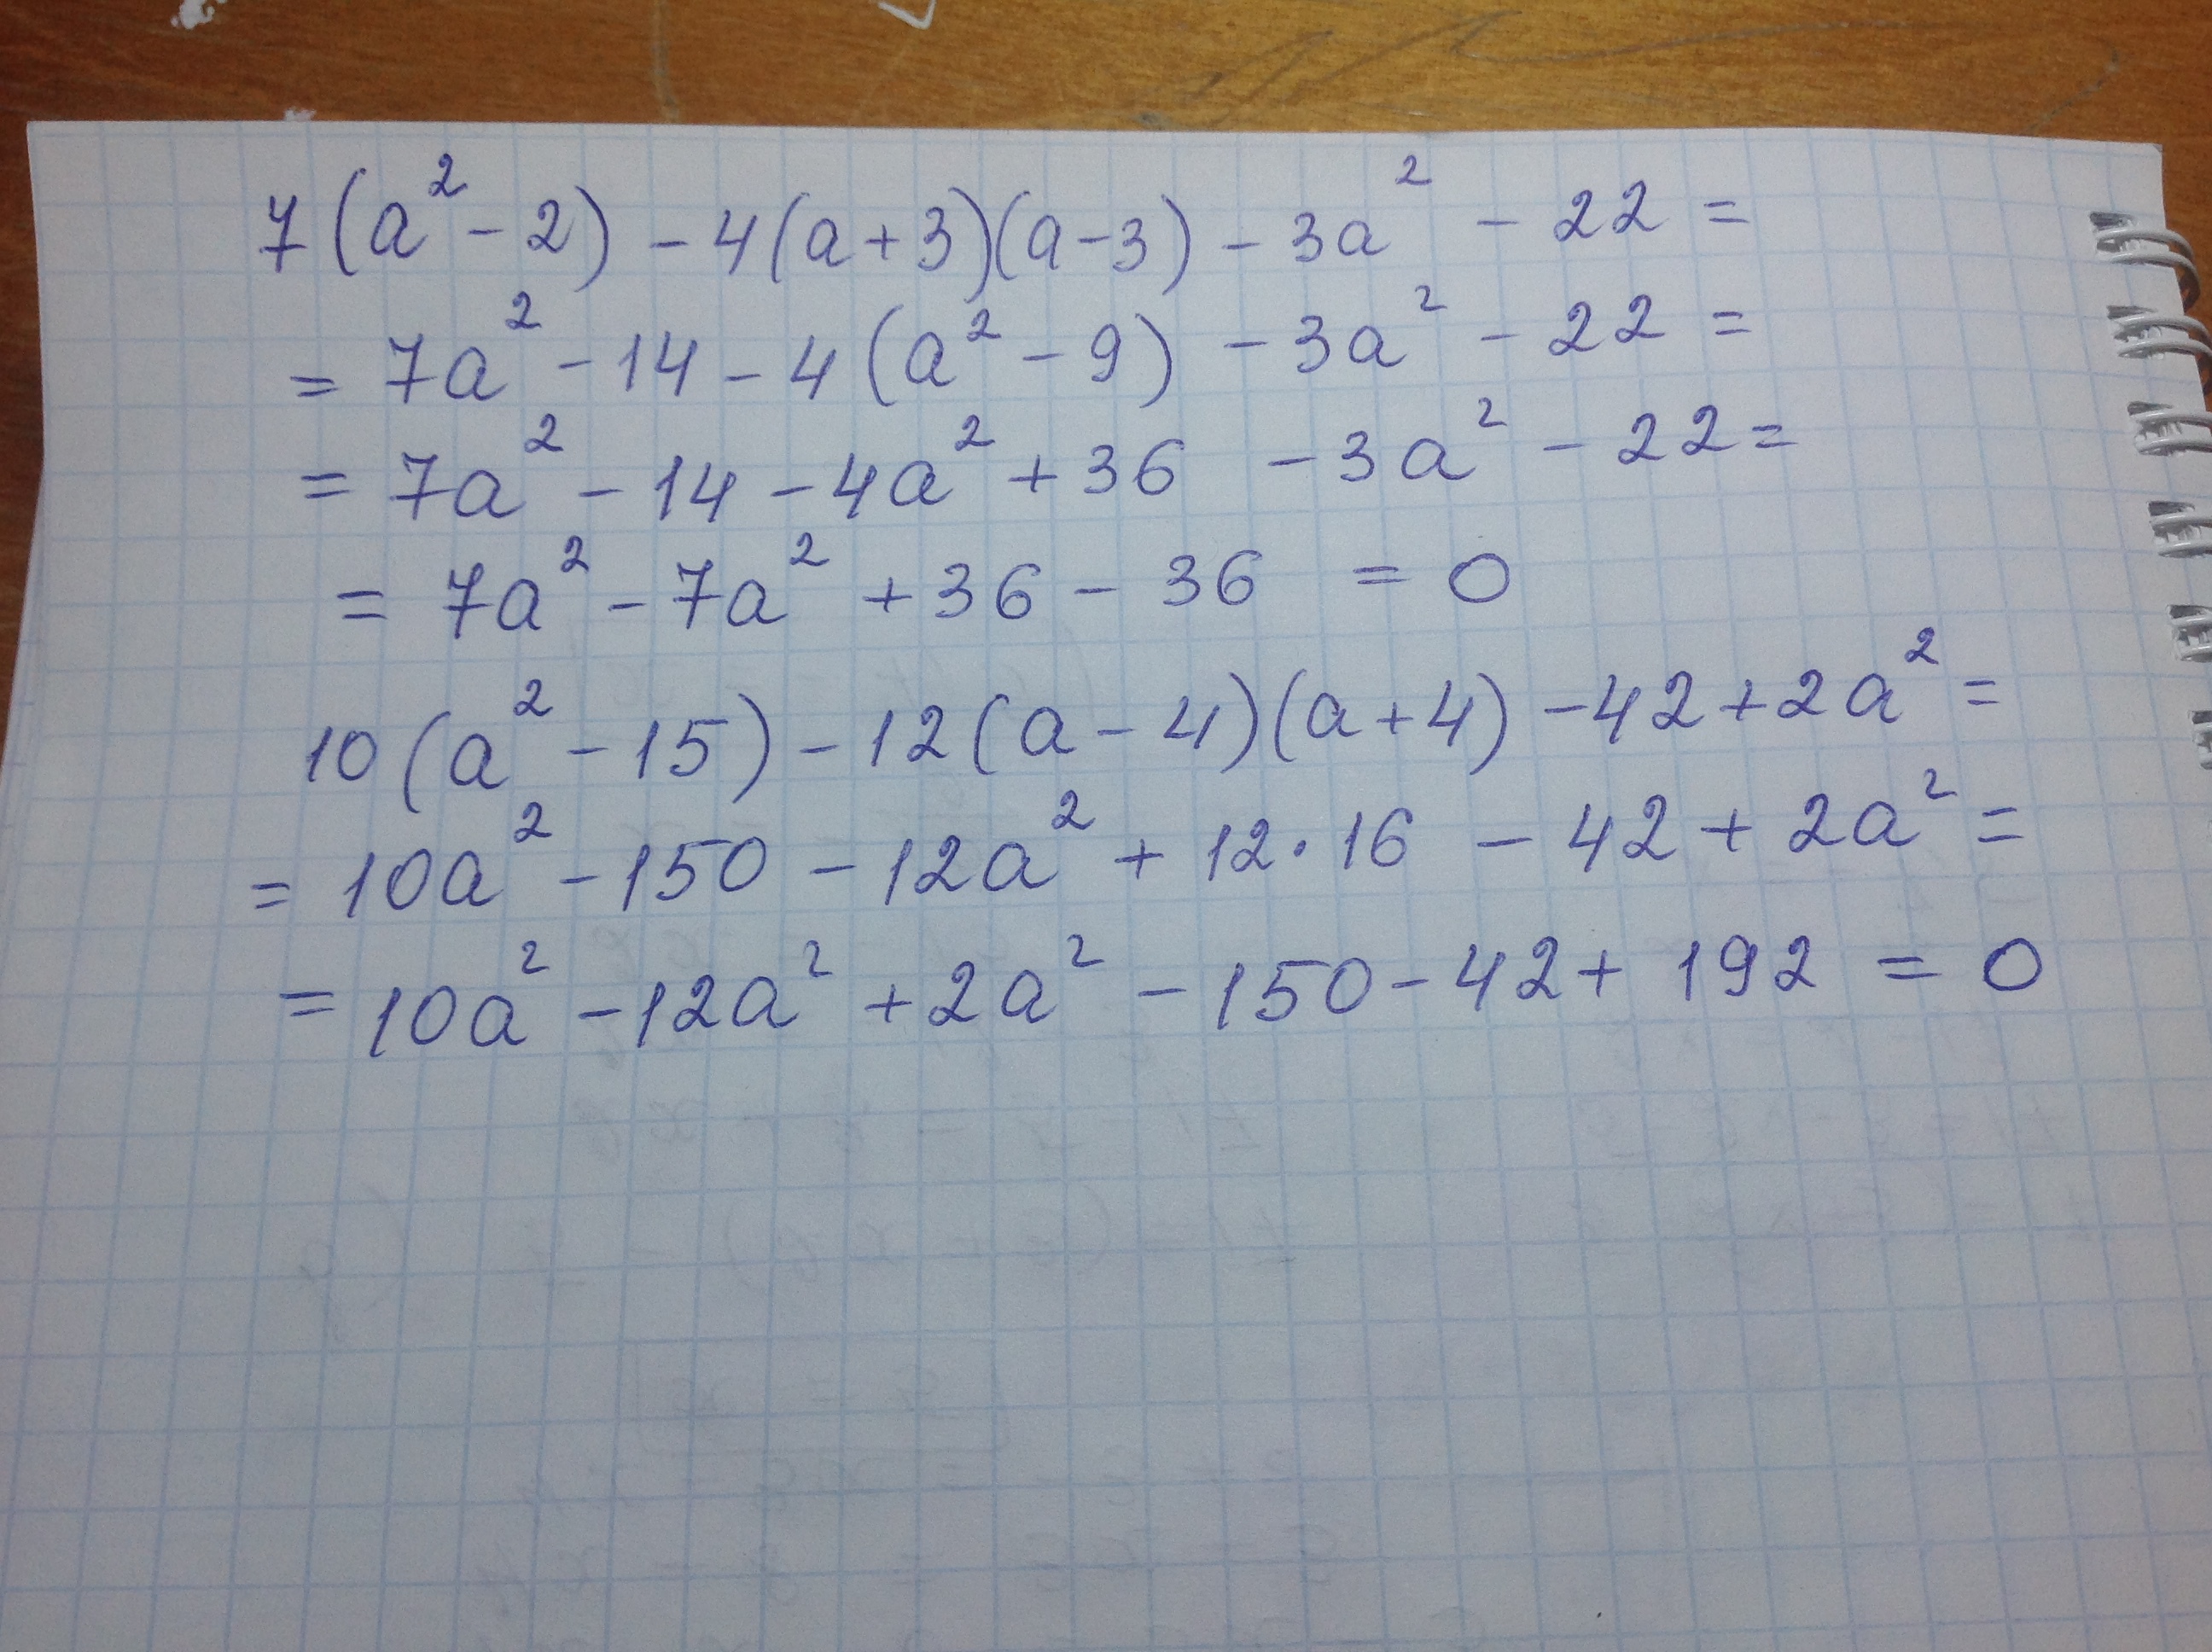 7(a² - 2) - 4(a+3)(a-3) - 3a² - 22 =
= 7a² - 14 - 4(a² - 9) - 3a² - 22 =
= 7a² - 14 - 4a² + 36 - 3a² - 22 =
= 7a² - 7a² + 36 - 36 = 0
10(a² - 15) - 12(a - 4)(a + 4) - 42 + 2a² =
= 10a² - 150 - 12a² + 12·16 - 42 + 2a² =
= 10a² - 12a² + 2a² - 150 - 42 + 192 = 0